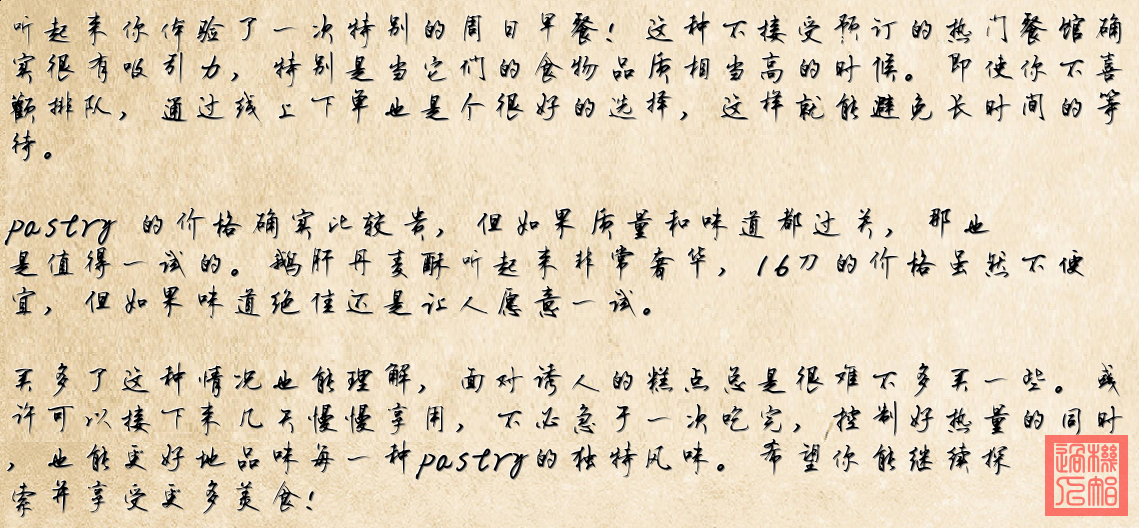 听起来你体验了一次特别的周日早餐！这种不接受预订的热门餐馆确
实很有吸引力，特别是当它们的食物品质相当高的时候。即使你不喜
欢排队，通过线上下单也是个很好的选择，这样就能避免长时间的等
待。
pastry 的价格确实比较贵，但如果质量和味道都过关，那也
是值得一试的。鹅肝丹麦酥听起来非常奢华，16刀的价格虽然不便
宜，但如果味道绝佳还是让人愿意一试。
买多了这种情况也能理解，面对诱人的糕点总是很难不多买一些。或
许可以接下来几天慢慢享用，不必急于一次吃完，控制好热量的同时
，也能更好地品味每一种pastry的独特风味。希望你能继续探
索并享受更多美食！